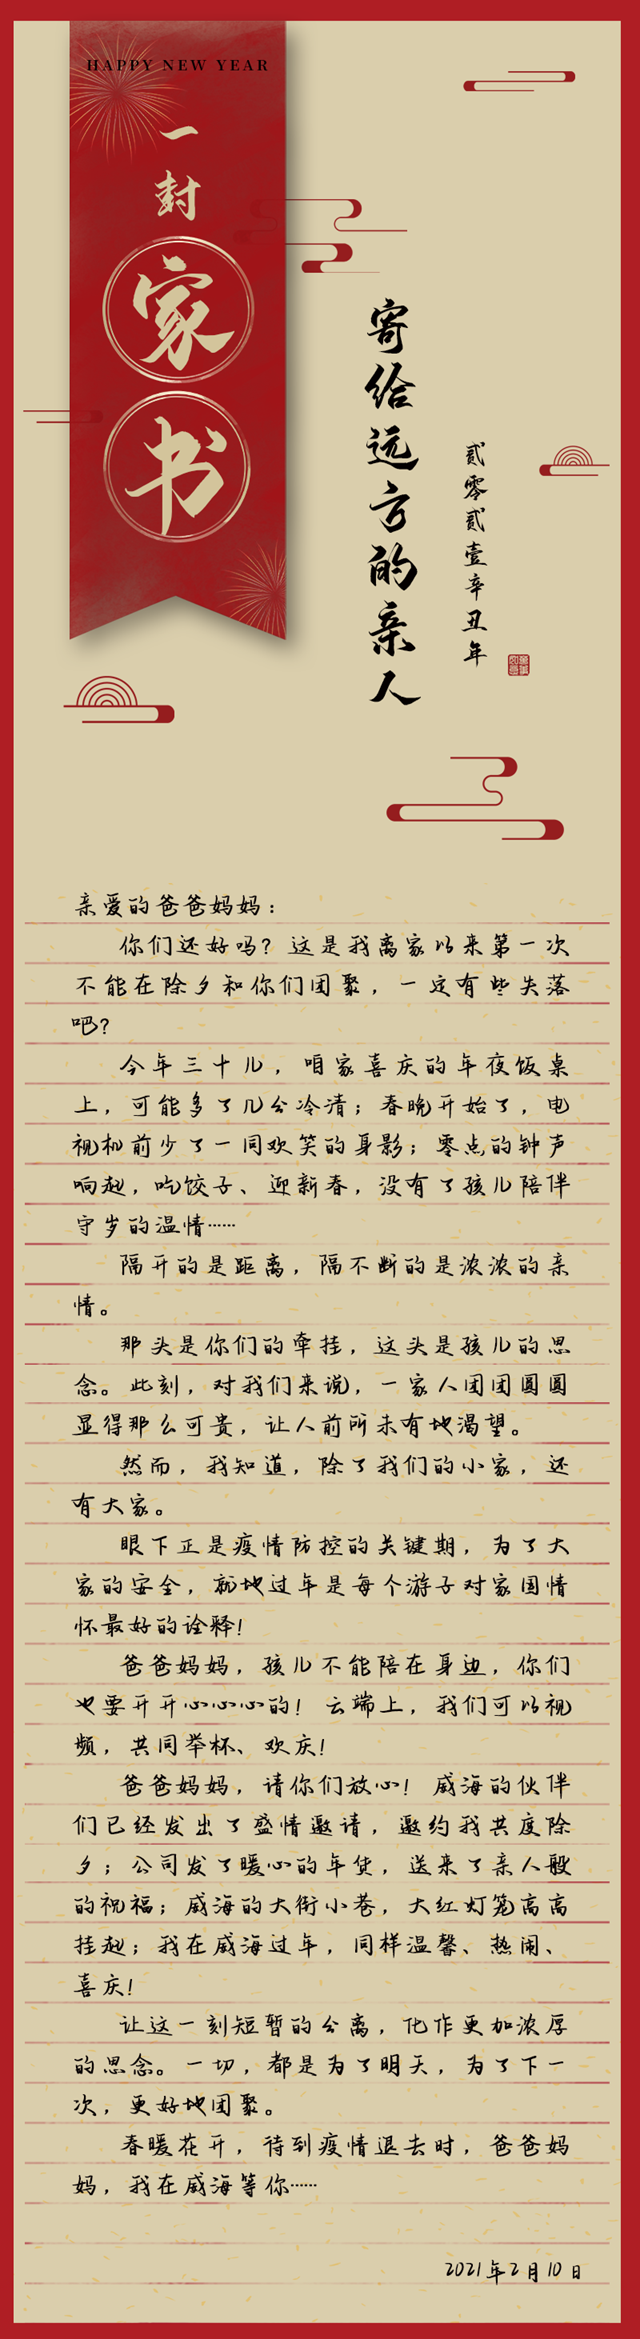 HAPPY NEW YEAR
一封家书
寄给远方的亲人
贰零贰壹辛丑年
亲爱的爸爸妈妈：
你们还好吗？这是我离家以来第一次
不能在除夕和你们团聚，一定有些失落
吧？
今年三十儿，咱家喜庆的年夜饭桌
上，可能多了几分冷清；春晚开始了，电
视机前少了一同欢笑的身影；零点的钟声
响起，吃饺子、迎新春，没有了孩儿陪伴
守岁的温情……
隔开的是距离，隔不断的是浓浓的亲
情。
那头是你们的牵挂，这头是孩儿的思
念。此刻，对我们来说，一家人团团圆圆
显得那么可贵，让人前所未有地渴望。
然而，我知道，除了我们的小家，还
有大家。
眼下正是疫情防控的关键期，为了大
家的安全，就地过年是每个游子对家国情
怀最好的诠释！
爸爸妈妈，孩儿不能陪在身边，你们
也要开开心心心的！云端上，我们可以视
频，共同举杯、欢庆！
爸爸妈妈，请你们放心！威海的伙伴
们已经发出了盛情邀请，邀约我共度除
夕；公司发了暖心的年货，送来了亲人般
的祝福；威海的大街小巷，大红灯笼高高
挂起；我在威海过年，同样温馨、热闹、
喜庆！
让这一刻短暂的分离，化作更加浓厚
的思念。一切，都是为了明天，为了下一
次，更好地团聚。
春暖花开，待到疫情退去时，爸爸妈
妈，我在威海等你……
2021年2月10日